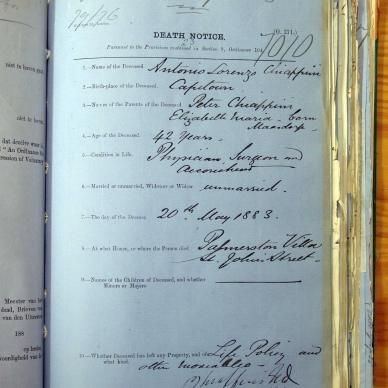 29/26
DEATH NOTICE. [O. 231.]
Pursuant to the Provisions contained in Section 9, Ordinance 104. 7010
1.—Name of the Deceased Antonio Lorenzo Chiappini
2.—Birth-place of the Deceased Capetown
3.—Names of the Parents of the Deceased Peter Chiappini
Elizabeth Maria born
4.—Age of the Deceased 42 Years.
5.—Condition in Life. Physician, Surgeon and
Accoucheur
6.—Married or unmarried, Widower or Widow unmarried.
7.—The day of the Decease 20th May 1883.
8.—At what House, or where the Person died Palmerston Villa
St. John's Street.
9.—Names of the Children of Deceased, and whether
Minors or Majors
10.—Whether Deceased has left any Property, and of Life Policy and
what kind. other moveables
niet te haren
niet te
dat deze
"An Ordinance
Meester van het
dead, Brieven van
van den Uitersten
188
op heden